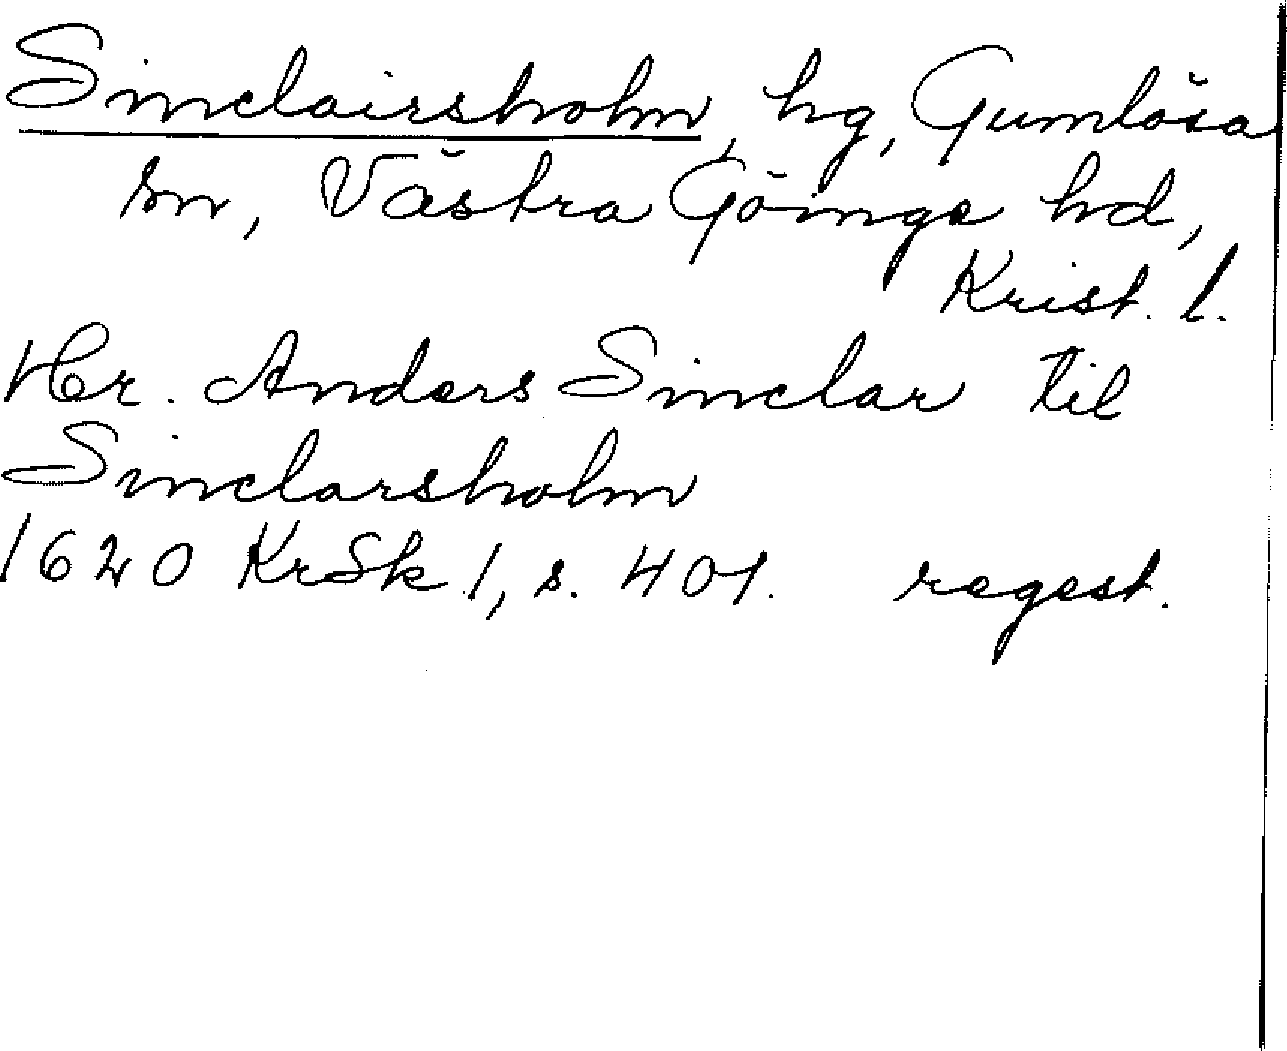 Sinclairsholm, hg, Gumlösa
sn, Västra Göinge hd,
Krist. l.
Hr. Anders Sinclar til
Sinclarsholm
1620 KrSk 1, s. 401. regest.